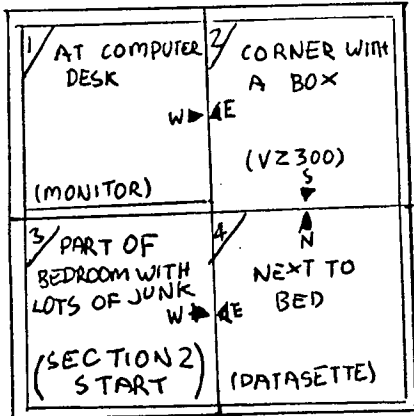 1 AT COMPUTER
DESK
W E
(MONITOR)
2 CORNER WITH
A BOX
(VZ300)
S
3 PART OF
BEDROOM WITH
LOTS OF JUNK
W E
(SECTION 2
START)
4
N
NEXT TO
BED
(DATASETTE)